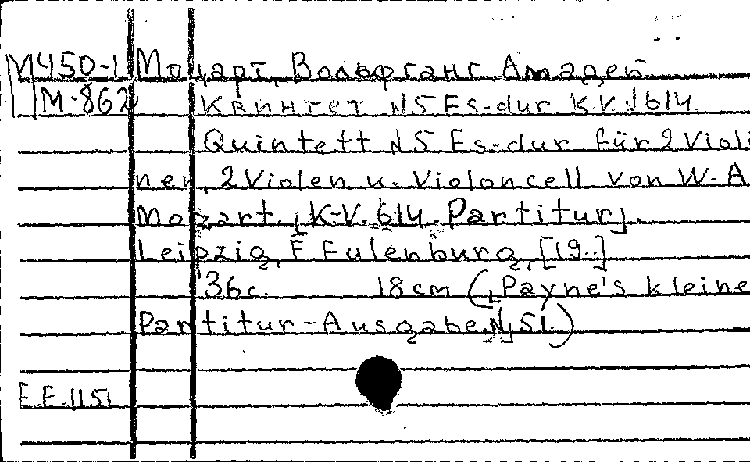 М450-1 Моцарт, Вольфганг Амадей
М-862 Квинтет №5 Es-dur K.V. 614.
Quintett №5 Es-dur für 2 Violi
nen, 2 Violen u. Violoncell von W. A
Mozart. [K-V. 614. Partitur].
Leipzig, E Eulenburg, [19..]
36 с. 18 cm (Payne's kleine
Partitur-Ausgabe, № 51.)
E.E. 1151